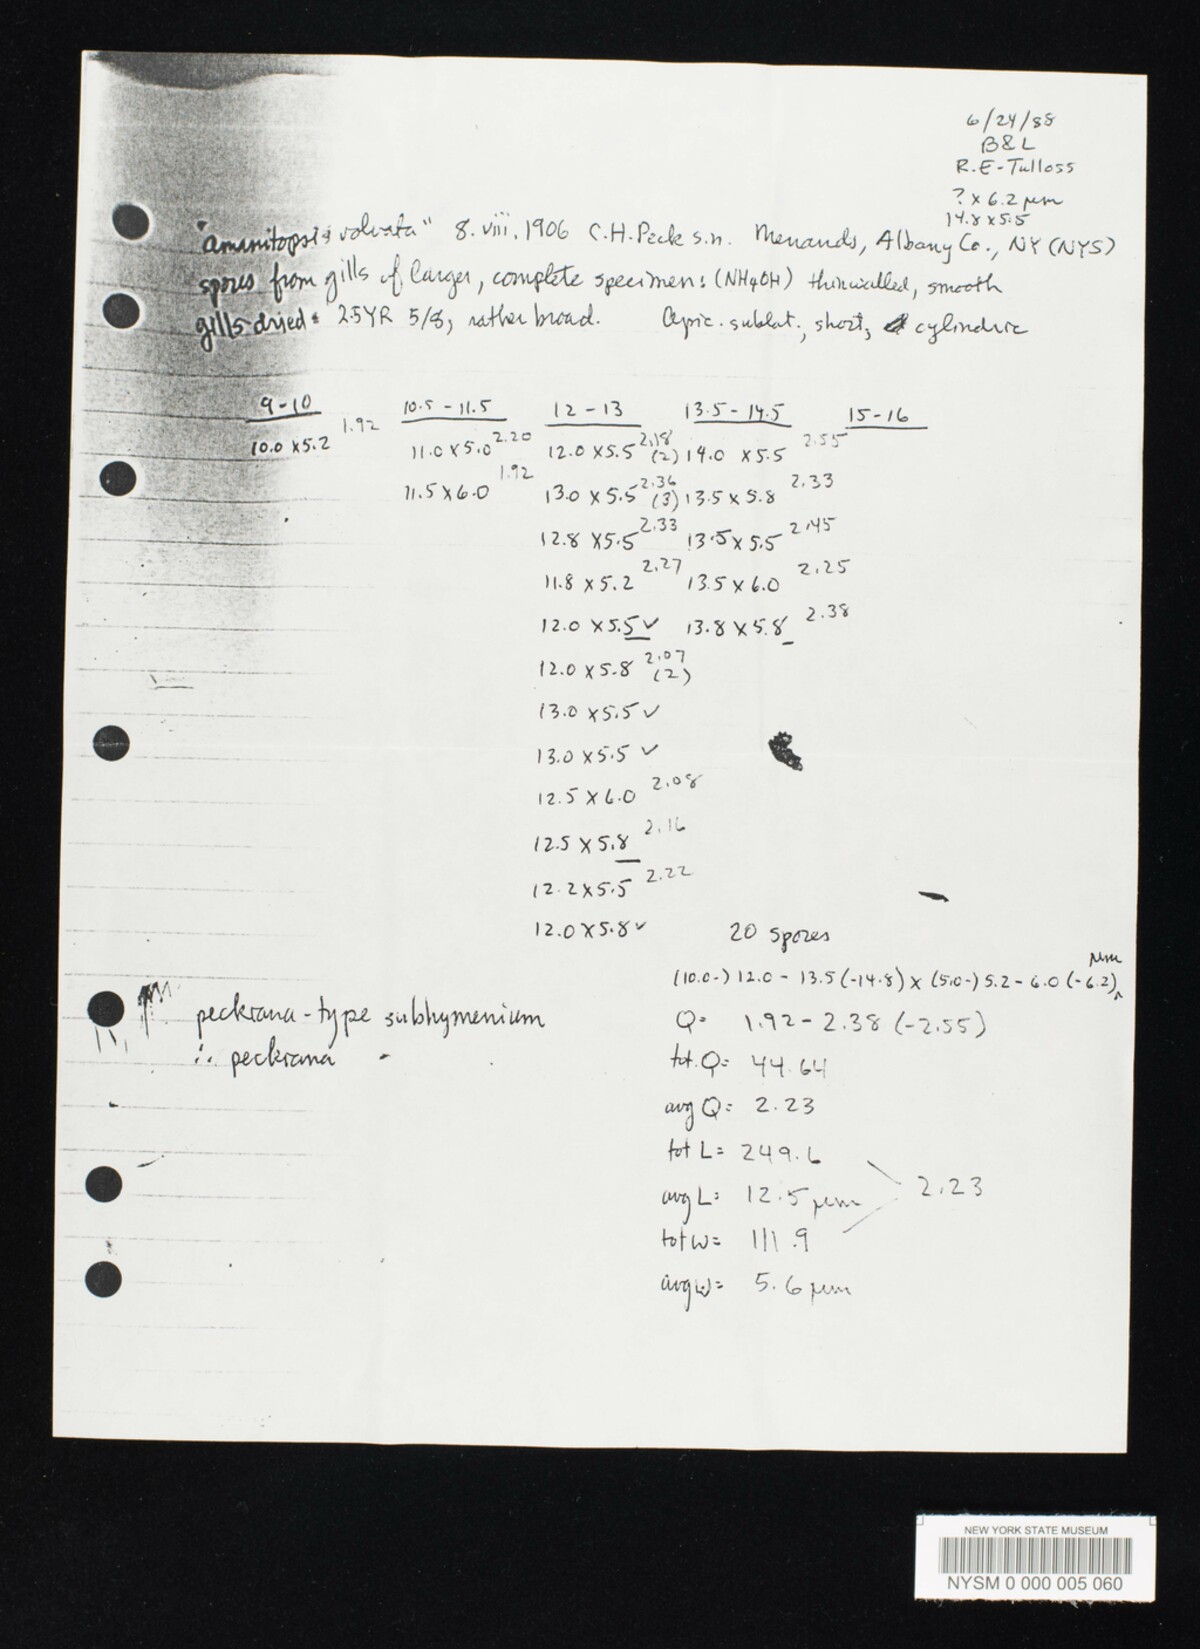 6/24/88
B&L
R.E. Tulloss
? x 6.2 µm
14.8 x 5.5
"Amanitopsis volvata" 8.viii.1906 C.H. Peck s.n. Menands, Albany Co., NY (NYS)
spores from gills of larger, complete specimen: (NH4OH) thinwalled, smooth
gills dried: 2.5YR 5/8, rather broad. Apic. sublat., short, cylindric
9-10 10.5-11.5 12-13 13.5-14.5 15-16
10.0 x 5.2 1.92 11.0 x 5.0 2.20 12.0 x 5.5 2.18 (2) 14.0 x 5.5 2.55
11.5 x 6.0 1.92 13.0 x 5.5 2.36 (3) 13.5 x 5.8 2.33
12.8 x 5.5 2.33 13.5 x 5.5 2.45
11.8 x 5.2 2.27 13.5 x 6.0 2.25
12.0 x 5.5 ✓ 13.8 x 5.8 2.38
12.0 x 5.8 2.07 (2)
13.0 x 5.5 ✓
13.0 x 5.5 ✓
12.5 x 6.0 2.08
12.5 x 5.8 2.16
12.2 x 5.5 2.22
12.0 x 5.8 ✓
20 spores
(10.0-) 12.0 - 13.5 (-14.8) x (5.0-) 5.2 - 6.0 (-6.2) µm
peckiana-type subhymenium
∴ peckiana
Q= 1.92 - 2.38 (-2.55)
tot.Q= 44.64
avg Q= 2.23
tot L= 249.6
avg L= 12.5 µm
2.23
tot w= 111.9
avg w= 5.6 µm
NEW YORK STATE MUSEUM
NYSM 0 000 005 060